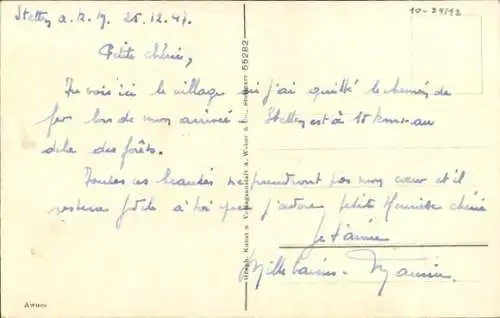 Stetten a.k.M. 26.12.47.
10-24/12
Petite chérie,
Tu vois ici le village où j'ai quitté le chemin de
fer lors de mon arrivée - Stetten est à 15 kms au
delà des forêts.
Toutes ces beautés ne prendront pas mon cœur et il
restera fidèle à toi que j'adore petite chérie
Je t'aime
Mille baisers -
Graph. Kunst- u. Verlagsanstalt A. Weber & Co., Stuttgart 55282